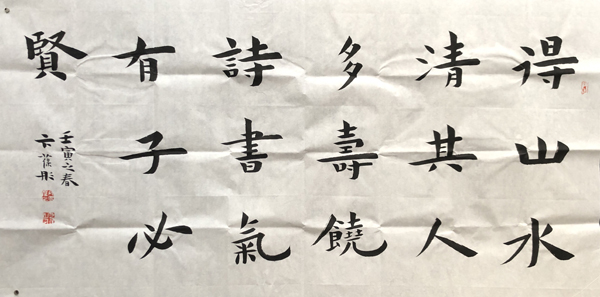 得山水
清其人
多壽饒
詩書氣
有子必
賢
壬寅之春